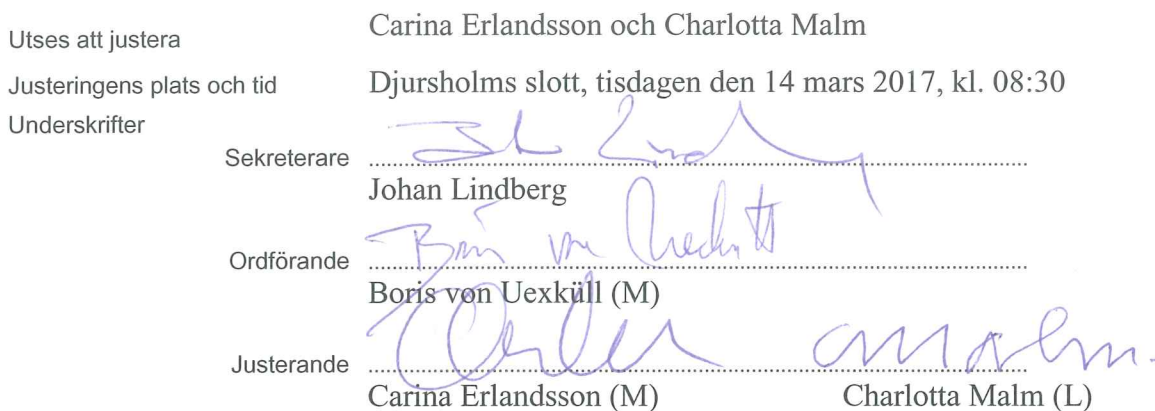 Utses att justera Carina Erlandsson och Charlotta Malm
Justeringens plats och tid Djursholms slott, tisdagen den 14 mars 2017, kl. 08:30
Underskrifter
Sekreterare
Johan Lindberg
Ordförande
Boris von Uexküll (M)
Justerande
Carina Erlandsson (M) Charlotta Malm (L)